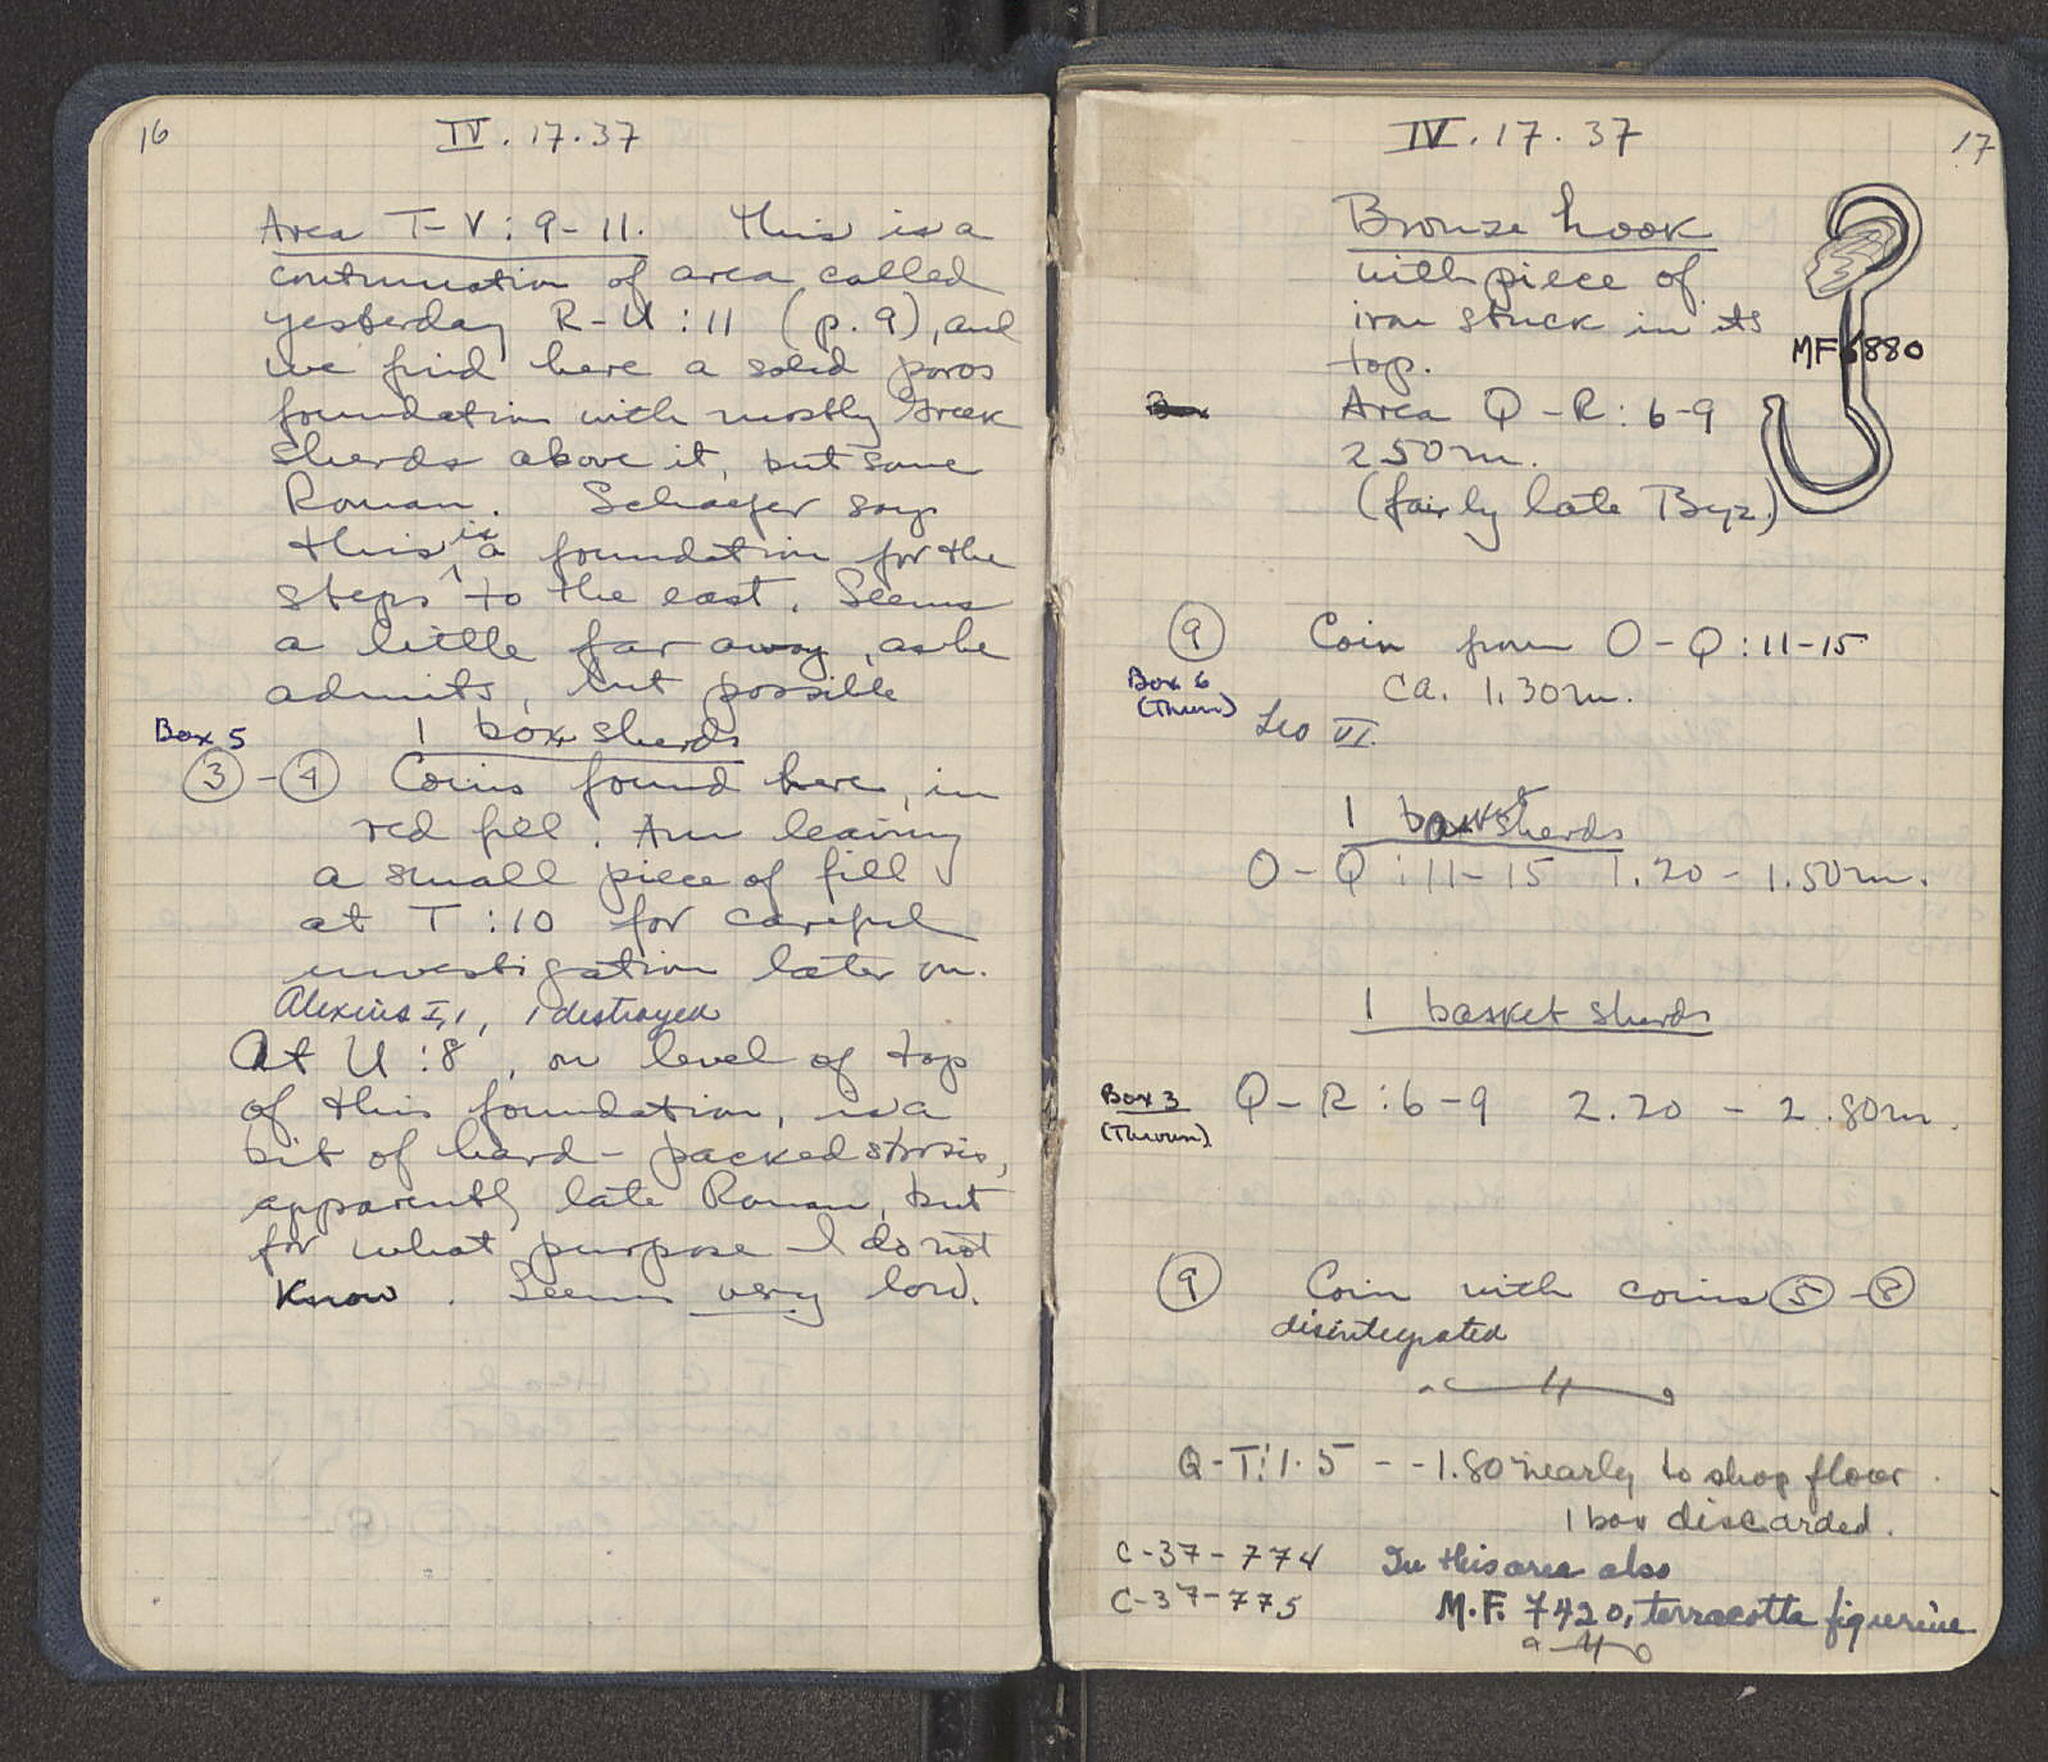 16
IV. 17. 37
Area T-V: 9-11. This is a
continuation of area called
yesterday R-U:11 (p. 9), and
we find here a solid poros
foundation with mostly Greek
sherds above it, but some
Roman. Schaefer says
this is a foundation for the
steps to the east. Seems
a little far away, as he
admits, but possible
1 box sherds
Box 5
③-④ Coins found here, in
red fill. Am leaving
a small piece of fill
at T:10 for careful
investigation later on.
Alexius I, 1, 1 destroyed
At U:8, on level of top
of this foundation, is a
bit of hard-packed strosis,
apparently late Roman, but
for what purpose I do not
know. Seems very low.
IV. 17. 37
17
Bronze hook
with piece of
iron stuck in its
top.
MF 6880
Box
Area Q-R: 6-9
2 50 m.
(fairly late Byz.)
⑨ Coin from O-Q:11-15
ca. 1.30 m.
Box 6
(Thrown)
Leo VI.
1 basket sherds
O-Q:11-15 1.20 - 1.50 m.
1 basket sherds
Box 3
(Thrown)
Q-R:6-9 2.20 - 2.80 m.
⑨ Coin with coins ⑤-⑧
disintegrated
Q-T:1-5 -- 1.80 nearly to shop floor.
1 box discarded.
C-37-774 In this area also
C-37-775 M.F. 7420, terracotta figurine